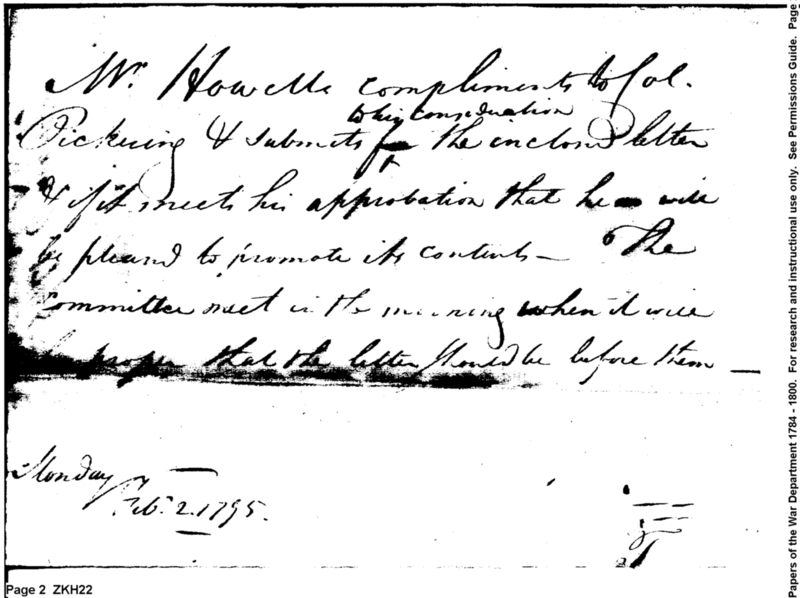 Mr. Howells compliments to Col.
to his consideration
Pickering & submits the enclosed letter
& if it meets his approbation that he will
be pleased to promote its contents — The
Committee meet in the morning when it will
be proper that the letter should be before them —
Monday
Feb. 2. 1795.
Page 2 ZKH22
Papers of the War Department 1784 - 1800. For research and instructional use only. See Permissions Guide. Page